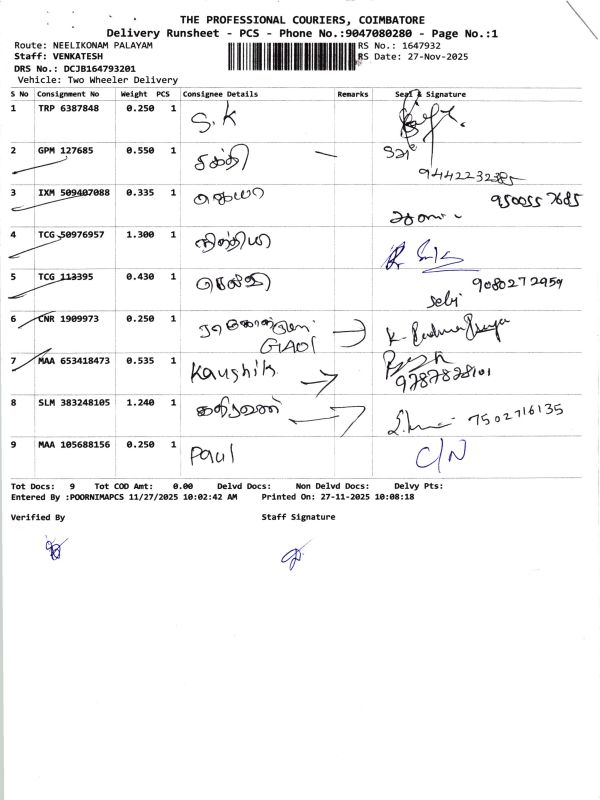 THE PROFESSIONAL COURIERS, COIMBATORE
Delivery Runsheet - PCS - Phone No.:9047080280 - Page No.:1
Route: NEELIKONAM PALAYAM RS No.: 1647932
Staff: VENKATESH RS Date: 27-Nov-2025
DRS No.: DCJB164793201
Vehicle: Two Wheeler Delivery
S No Consignment No Weight PCS Consignee Details Remarks Seal & Signature
1 TRP 6387848 0.250 1 S.K
2 GPM 127685 0.550 1 சக்தி
3 IXM 509407088 0.335 1 ஜெயா
4 TCG 50976957 1.300 1 நித்தியா
5 TCG 113395 0.430 1 9080272959
6 CNR 1909973 0.250 1
7 MAA 653418473 0.535 1 Kaushik 9787828101
8 SLM 383248105 1.240 1 கதிரவன் 7502716135
9 MAA 105688156 0.250 1 Paul C/N
Tot Docs: 9 Tot COD Amt: 0.00 Delvd Docs: Non Delvd Docs: Delvy Pts:
Entered By :POORNIMAPCS 11/27/2025 10:02:42 AM Printed On: 27-11-2025 10:08:18
Verified By Staff Signature